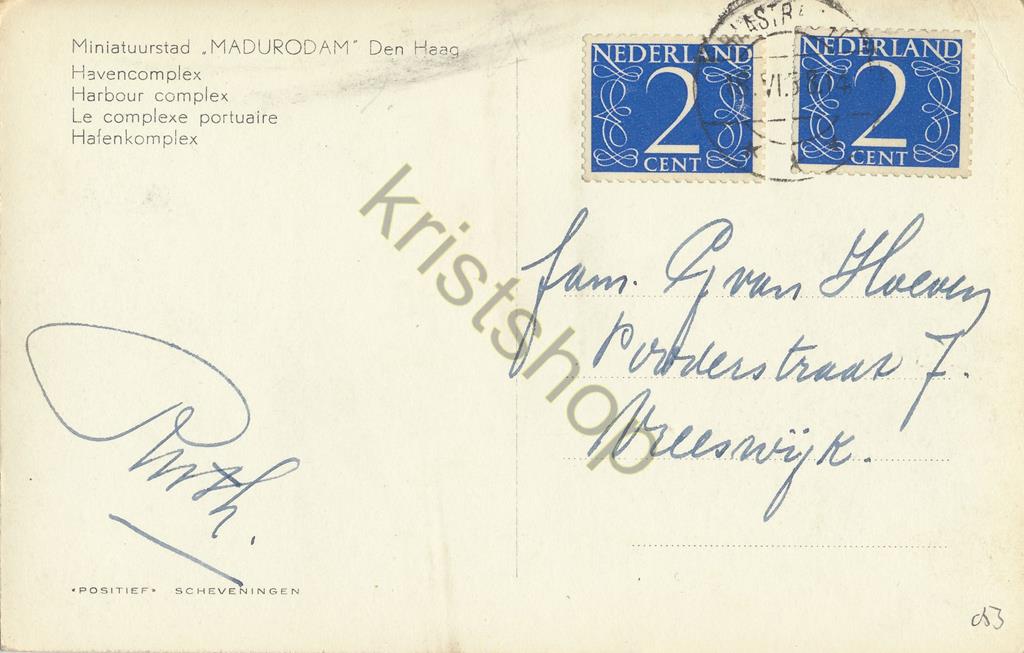 Miniatuurstad „MADURODAM" Den Haag
Havencomplex
Harbour complex
Le complexe portuaire
Hafenkomplex
NEDERLAND
2
CENT
NEDERLAND
2
CENT
fam. G van Hoeven
straat 7.
Vreeswijk.
kristshop
Ruth.
"POSITIEF" SCHEVENINGEN